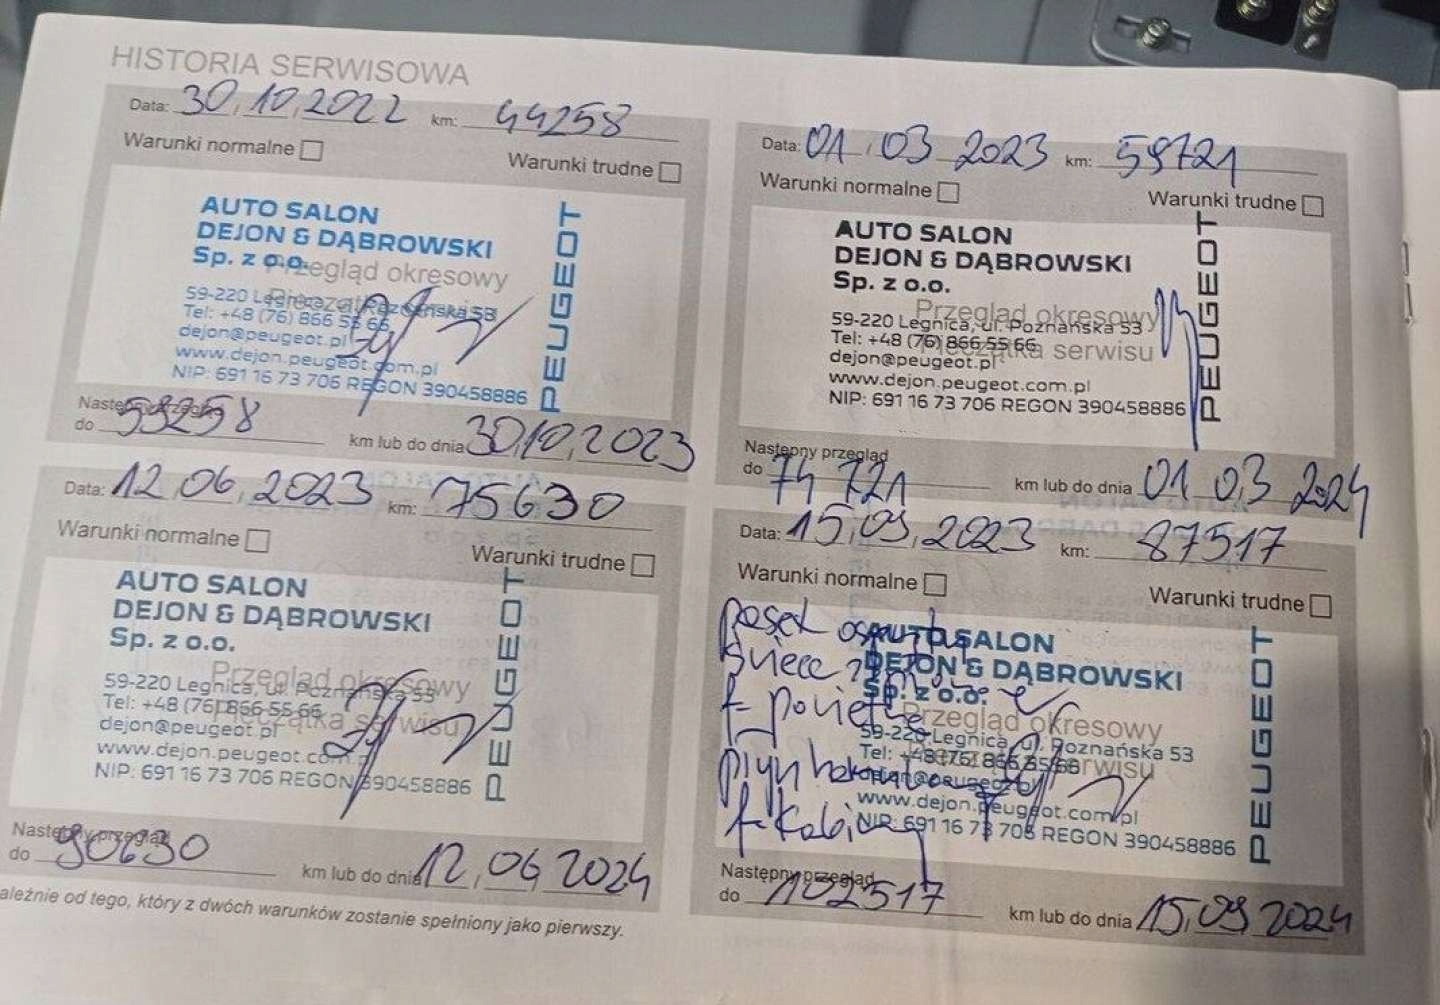 HISTORIA SERWISOWA
Data: 30.10.2022 km: 44258
Warunki normalne
Warunki trudne
AUTO SALON
DEJON & DĄBROWSKI
Sp. z o.o.
Przegląd okresowy
Pieczątka serwisu
59-220 Legnica, ul. Poznańska 53
Tel: +48 (76) 866 55 66
dejon@peugeot.pl
www.dejon.peugeot.com.pl
NIP: 691 16 73 706 REGON 390458886
PEUGEOT
Następny przegląd
do 59258 km lub do dnia 30.10.2023
Data: 01.03 2023 km: 59721
Warunki normalne
Warunki trudne
AUTO SALON
DEJON & DĄBROWSKI
Sp. z o.o.
Przegląd okresowy
59-220 Legnica, ul. Poznańska 53
Tel: +48 (76) 866 55 66
Pieczątka serwisu
dejon@peugeot.pl
www.dejon.peugeot.com.pl
NIP: 691 16 73 706 REGON 390458886
PEUGEOT
Następny przegląd
do 74 721 km lub do dnia 01.03 2024
Data: 12.06.2023 km: 75630
Warunki normalne
Warunki trudne
AUTO SALON
DEJON & DĄBROWSKI
Sp. z o.o.
Przegląd okresowy
59-220 Legnica, ul. Poznańska 53
Tel: +48 (76) 866 55 66
Pieczątka serwisu
dejon@peugeot.pl
www.dejon.peugeot.com.pl
NIP: 691 16 73 706 REGON 390458886
PEUGEOT
Następny przegląd
do 90630 km lub do dnia 12.06 2024
Data: 15.09.2023 km: 87517
Warunki normalne
Warunki trudne
pasek osprzętu
świece
f-powietrze
płyn hamulcowy
f-kabiny
AUTO SALON
DEJON & DĄBROWSKI
Sp. z o.o.
Przegląd okresowy
59-220 Legnica, ul. Poznańska 53
Tel: +48 (76) 866 55 66
Pieczątka serwisu
dejon@peugeot.pl
www.dejon.peugeot.com.pl
NIP: 691 16 73 706 REGON 390458886
PEUGEOT
Następny przegląd
do 102517 km lub do dnia 15.09 2024
ależnie od tego, który z dwóch warunków zostanie spełniony jako pierwszy.